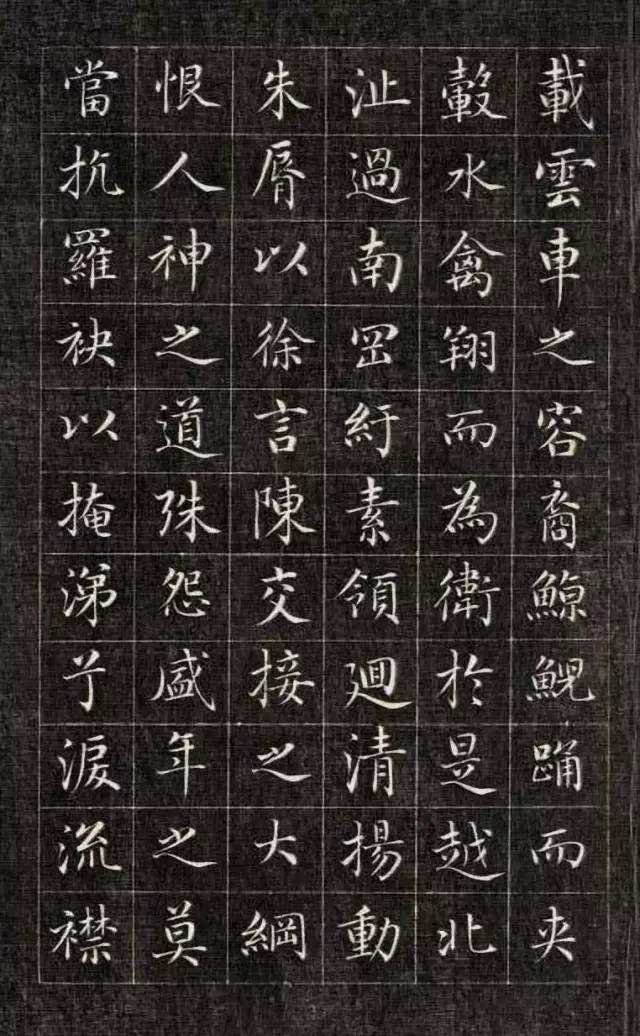 載雲車之容裔鯨鯢踊而夾
轂水禽翔而為衛於是越北
沚過南岡紆素領廻清揚動
朱脣以徐言陳交接之大綱
恨人神之道殊怨盛年之莫
當抗羅袂以掩涕兮淚流襟